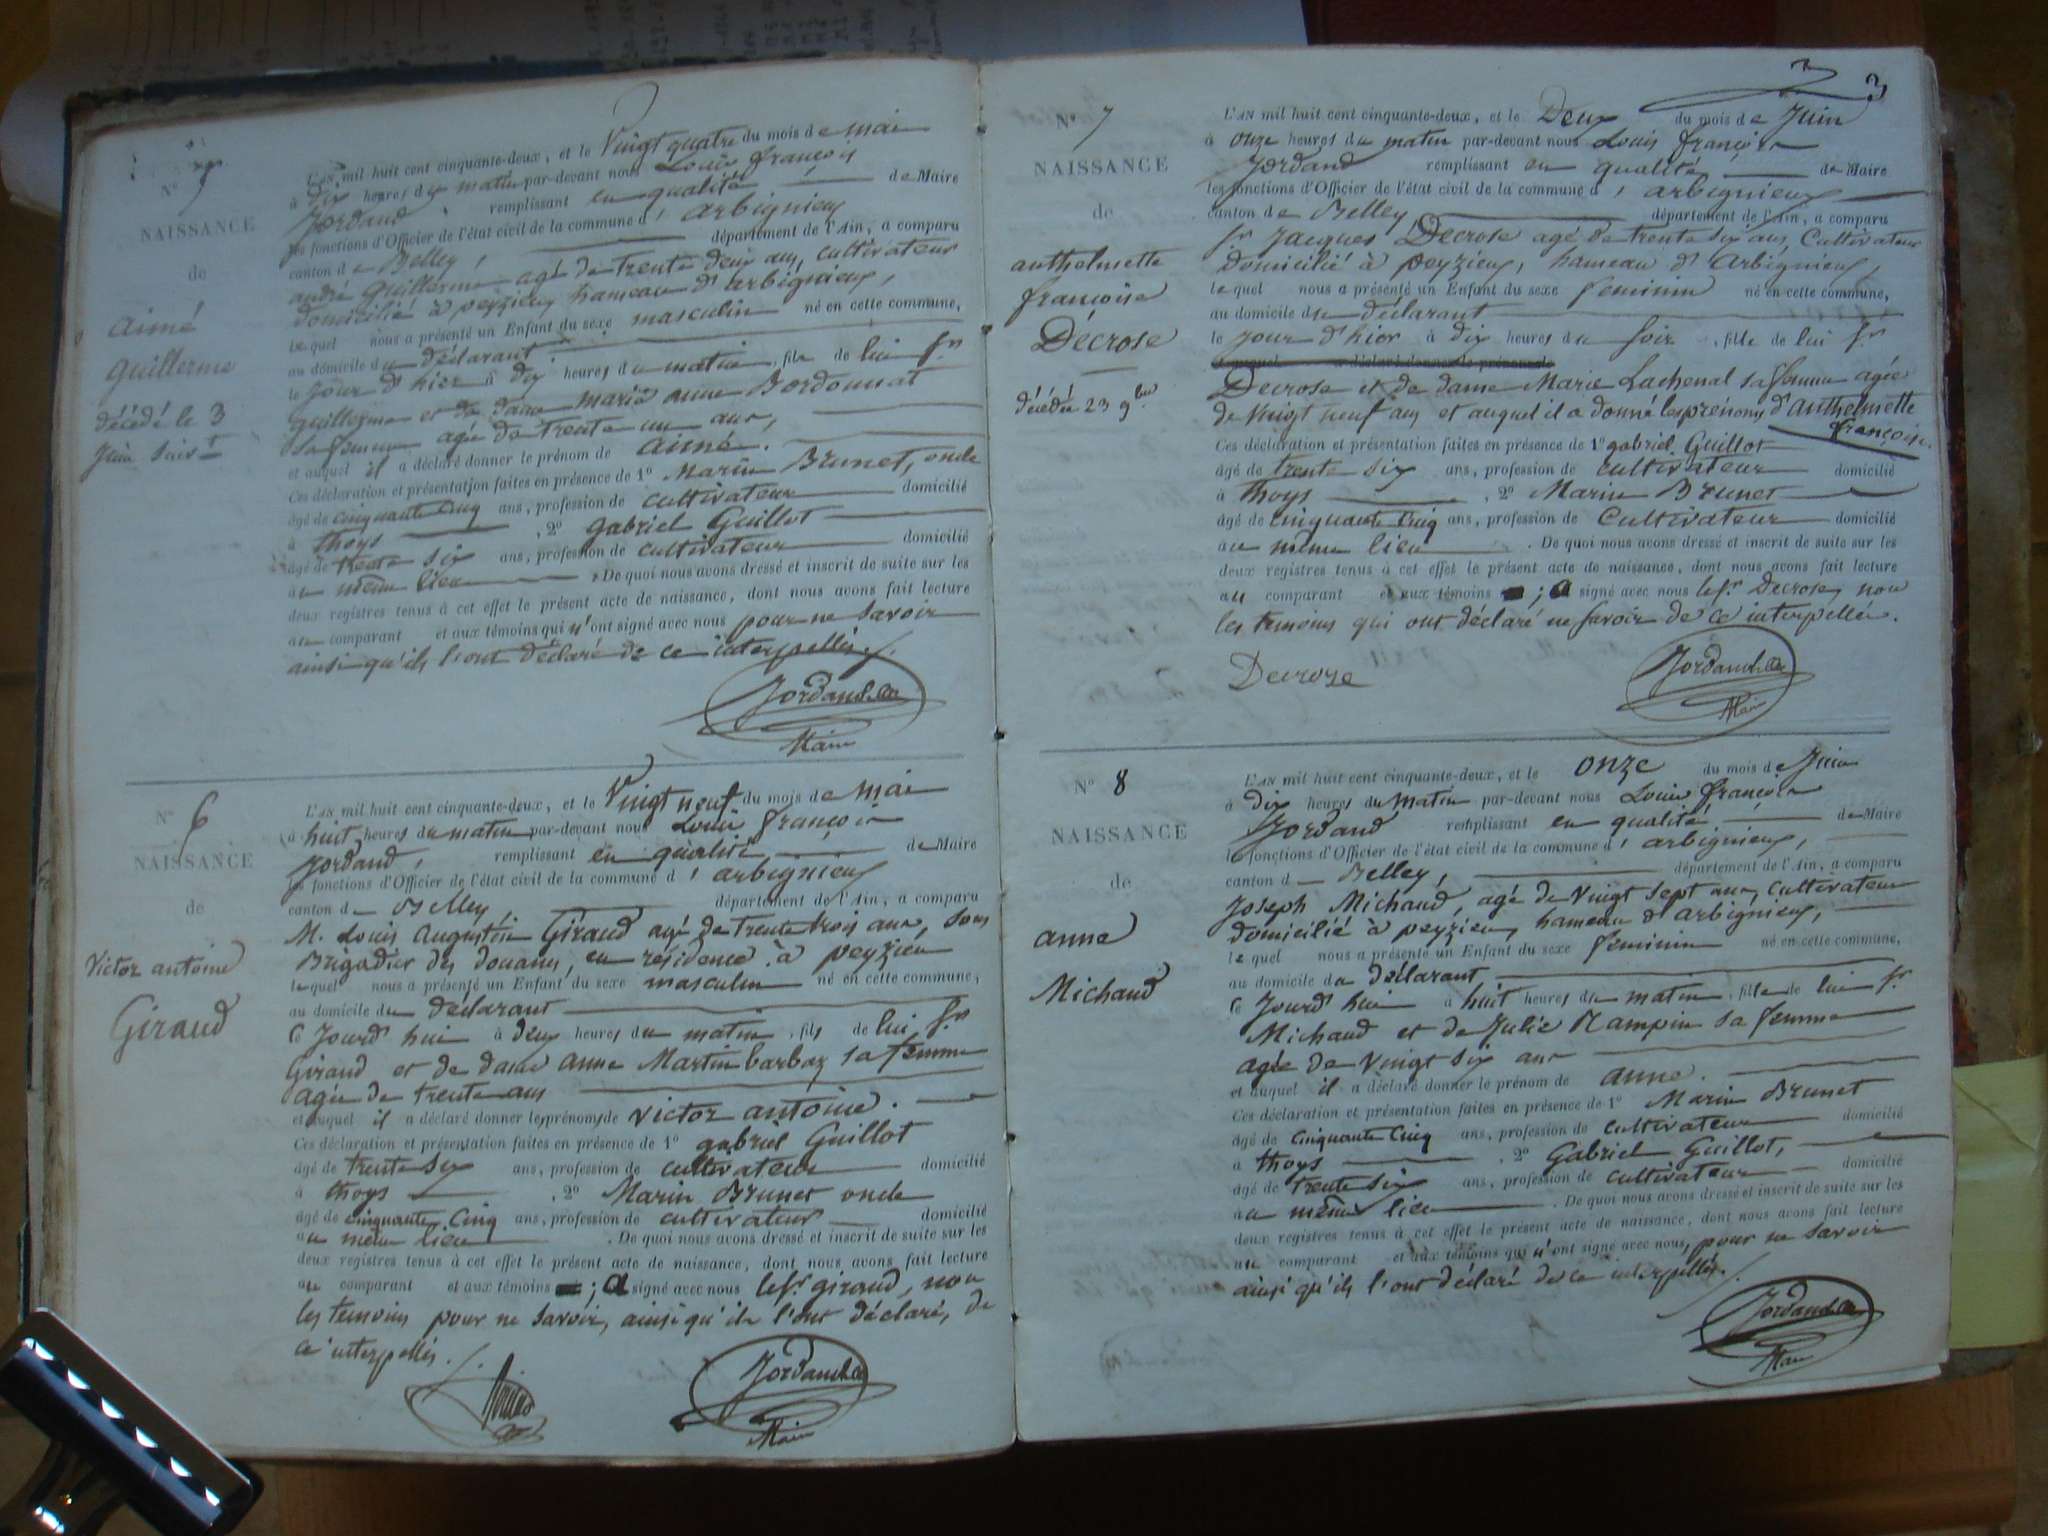 N° 5
NAISSANCE
de
aimé
guillerme
décédé le 3
Juin suivt
L'AN mil huit cent cinquante-deux, et le Vingt quatre du mois de mai
à dix heures du matin par-devant nous Louis françois
Jordand remplissant en qualité de Maire
les fonctions d'Officier de l'état civil de la commune d'arbignieu
canton de Belley, département de l'Ain, a comparu
andré guillerme agé de trente deux ans, cultivateur
domicilié à peyzieu hameau d'arbignieu,
lequel nous a présenté un Enfant du sexe masculin né en cette commune,
au domicile du déclarant
le jour d'hier à dix heures du matin, fils de lui Sr
guillerme et de dame marie anne Bordonnat
sa femme agée de trente un ans,
et auquel il a déclaré donner le prénom de aimé.
Ces déclaration et présentation faites en présence de 1° Marin Brunet, oncle
âgé de cinquante cinq ans, profession de cultivateur domicilié
à thoys , 2° gabriel Guillot
âgé de trente six ans, profession de cultivateur domicilié
au même lieu . De quoi nous avons dressé et inscrit de suite sur les
deux registres tenus à cet effet le présent acte de naissance, dont nous avons fait lecture
au comparant et aux témoins qui n'ont signé avec nous pour ne savoir
ainsi qu'ils l'ont déclaré de ce interpellés.
Jordand
Maire
N° 6
NAISSANCE
de
Victor antoine
Giraud
L'AN mil huit cent cinquante-deux, et le Vingt neuf du mois de mai
à huit heures du matin par-devant nous Louis françois
Jordand, remplissant en qualité de Maire
les fonctions d'Officier de l'état civil de la commune d'arbignieu
canton d Belley département de l'Ain, a comparu
M. Louis augustin Giraud agé de trente trois ans, sous
Brigadier des douanes, en résidence à peyzieu
lequel nous a présenté un Enfant du sexe masculin né en cette commune,
au domicile du déclarant
ce jourd'hui à deux heures du matin, fils de lui Sr
Giraud et de dame anne Martin barbaz sa femme
agée de trente ans
et auquel il a déclaré donner les prénoms de victor antoine.
Ces déclaration et présentation faites en présence de 1° gabriel Guillot
âgé de trente six ans, profession de cultivateur domicilié
à thoys , 2° Marin Brunet oncle
âgé de cinquante cinq ans, profession de cultivateur domicilié
au même lieu . De quoi nous avons dressé et inscrit de suite sur les
deux registres tenus à cet effet le présent acte de naissance, dont nous avons fait lecture
au comparant et aux témoins ; a signé avec nous le Sr giraud, non
les temoins pour ne savoir, ainsi qu'ils l'ont déclaré, de
ce interpellés.
Jordand
Maire
3
N° 7
NAISSANCE
de
anthelmette
françoise
Décrose
décédée 23 9bre
L'AN mil huit cent cinquante-deux, et le Deux du mois de Juin
à onze heures du matin par-devant nous Louis françois
Jordand remplissant en qualité de Maire
les fonctions d'Officier de l'état civil de la commune d'arbignieu
canton de Belley département de l'Ain, a comparu
Sr Jacques Decrose agé de trente six ans, Cultivateur
domicilié à peyzieu, hameau d'Arbignieu,
lequel nous a présenté un Enfant du sexe feminin né en cette commune,
au domicile du déclarant
le jour d'hier à dix heures du soir, fille de lui Sr
Decrose et de dame Marie Lachenal sa femme agée
de Vingt neuf ans et auquel il a donné les prénoms d'anthelmette
françoise.
Ces déclaration et présentation faites en présence de 1° gabriel Guillot
âgé de trente six ans, profession de cultivateur domicilié
à thoys , 2° Marin Brunet
âgé de cinquante cinq ans, profession de Cultivateur domicilié
au même lieu . De quoi nous avons dressé et inscrit de suite sur les
deux registres tenus à cet effet le présent acte de naissance, dont nous avons fait lecture
au comparant et aux témoins ; a signé avec nous le Sr Decrose, non
les temoins qui ont déclaré ne savoir de ce interpellés.
Decrose
Jordand
Maire
N° 8
NAISSANCE
de
anne
Michaud
L'AN mil huit cent cinquante-deux, et le onze du mois de Juin
à dix heures du matin par-devant nous Louis françois
Jordand remplissant en qualité de Maire
les fonctions d'Officier de l'état civil de la commune d'arbignieu,
canton d Belley, département de l'Ain, a comparu
Joseph Michaud, agé de Vingt sept ans, cultivateur
domicilié à peyzieu, hameau d'arbignieu,
lequel nous a présenté un Enfant du sexe feminin né en cette commune,
au domicile du déclarant
ce jourd'hui à huit heures du matin, fille de lui Sr
Michaud et de Julie Rampin sa femme
agée de Vingt six ans
et auquel il a déclaré donner le prénom de anne.
Ces déclaration et présentation faites en présence de 1° Marin Brunet
âgé de cinquante cinq ans, profession de cultivateur domicilié
à thoys , 2° Gabriel Guillot,
âgé de trente six ans, profession de cultivateur domicilié
au même lieu . De quoi nous avons dressé et inscrit de suite sur les
deux registres tenus à cet effet le présent acte de naissance, dont nous avons fait lecture
au comparant et aux témoins qui n'ont signé avec nous, pour ne savoir
ainsi qu'ils l'ont déclaré de ce interpellés.
Jordand
Maire